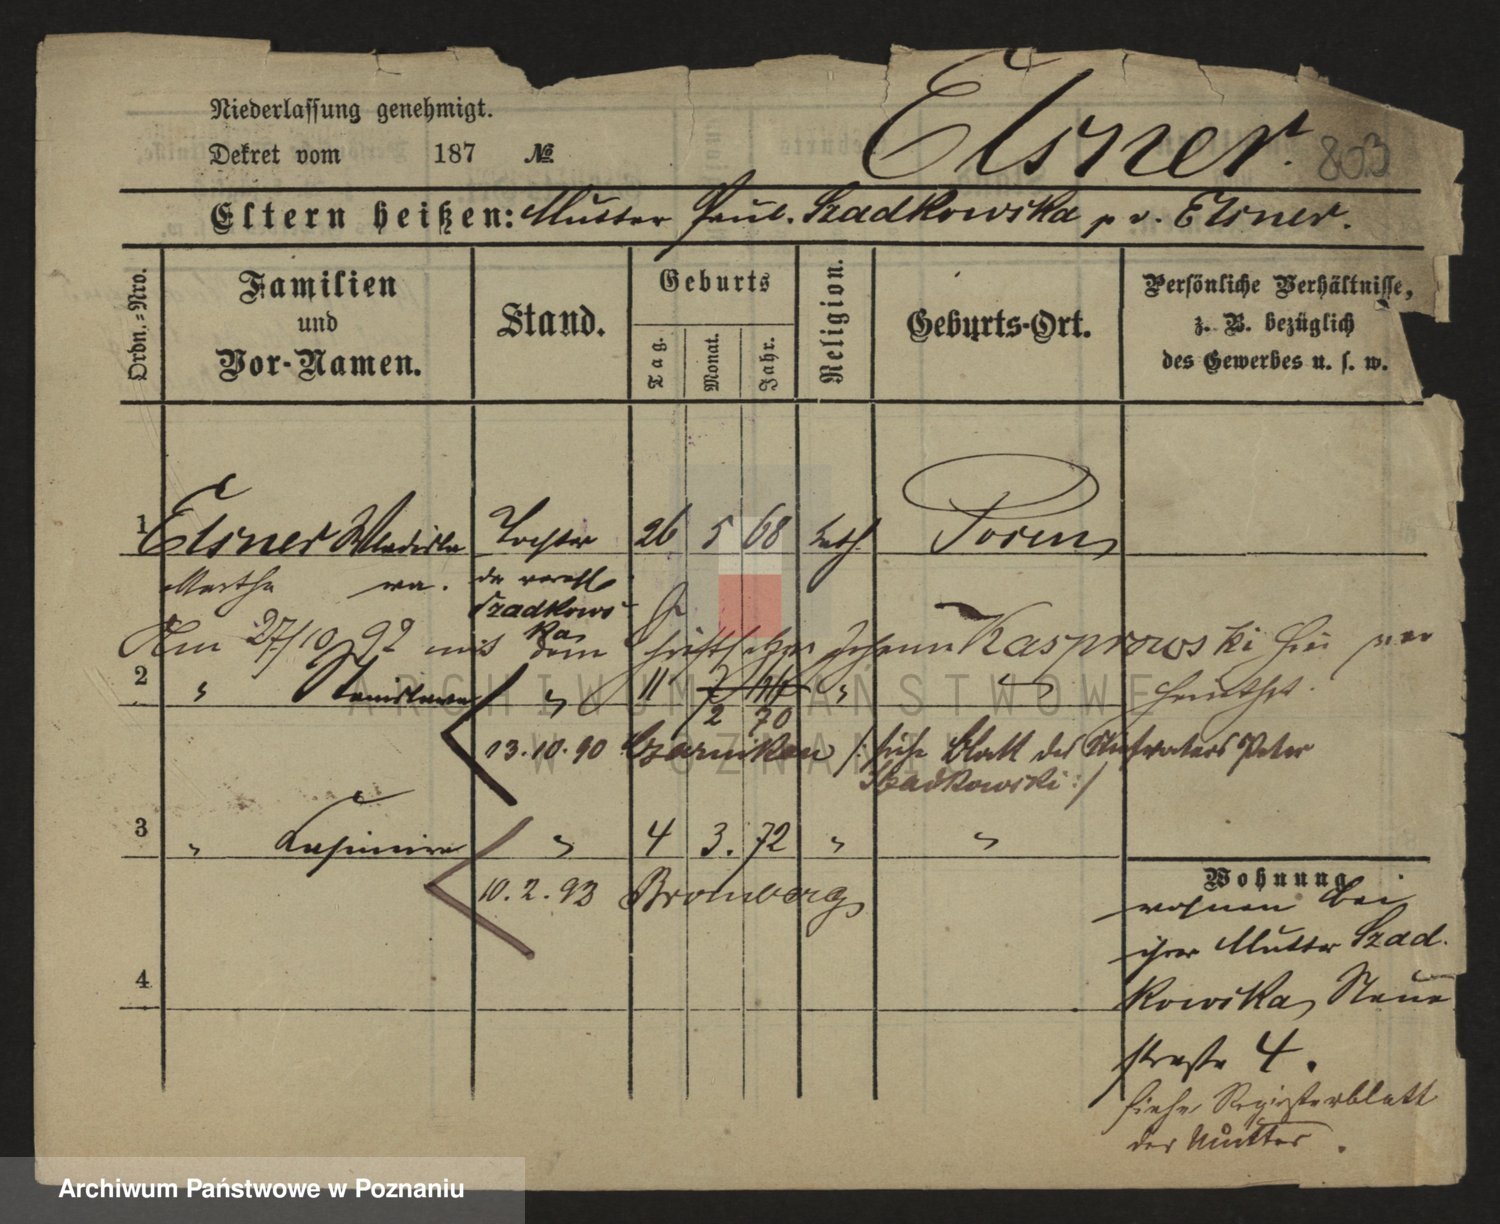 Niederlassung genehmigt.
Dekret vom 187 №
Elsner.
803
Eltern heißen: Mutter Paul. Szadkowska p. v. Elsner.
Ordn.-Nro.
Familien und Vor-Namen.
Stand.
Geburts
Tag.
Monat.
Jahr.
Religion.
Geburts-Ort.
Persönliche Verhältnisse,
z. B. bezüglich
des Gewerbes u. s. w.
1 Elsner Wladisla Tochter 26 5 68 kath. Posen
Martha wa. der verehl
Szadkows
ka
Am 27/10 92 mit dem Schriftsetzer Johann Kasprowski hier ver
2 " Stanislawa " 11 7 " " heirathet.
2 70
13.10.90 Czarnikau /: siehe Blatt des Stiefvaters Peter
Szadkowski :/
3 " Kasimira " 4 3. 72 " "
10.2.93 Bromberg
Wohnung
wohnen bei
ihrer Mutter Szad.
kowska, Neue
straße 4.
siehe Registerblatt
der Mutter.
4
ARCHIWUM PAŃSTWOWE
W POZNANIU
Archiwum Państwowe w Poznaniu